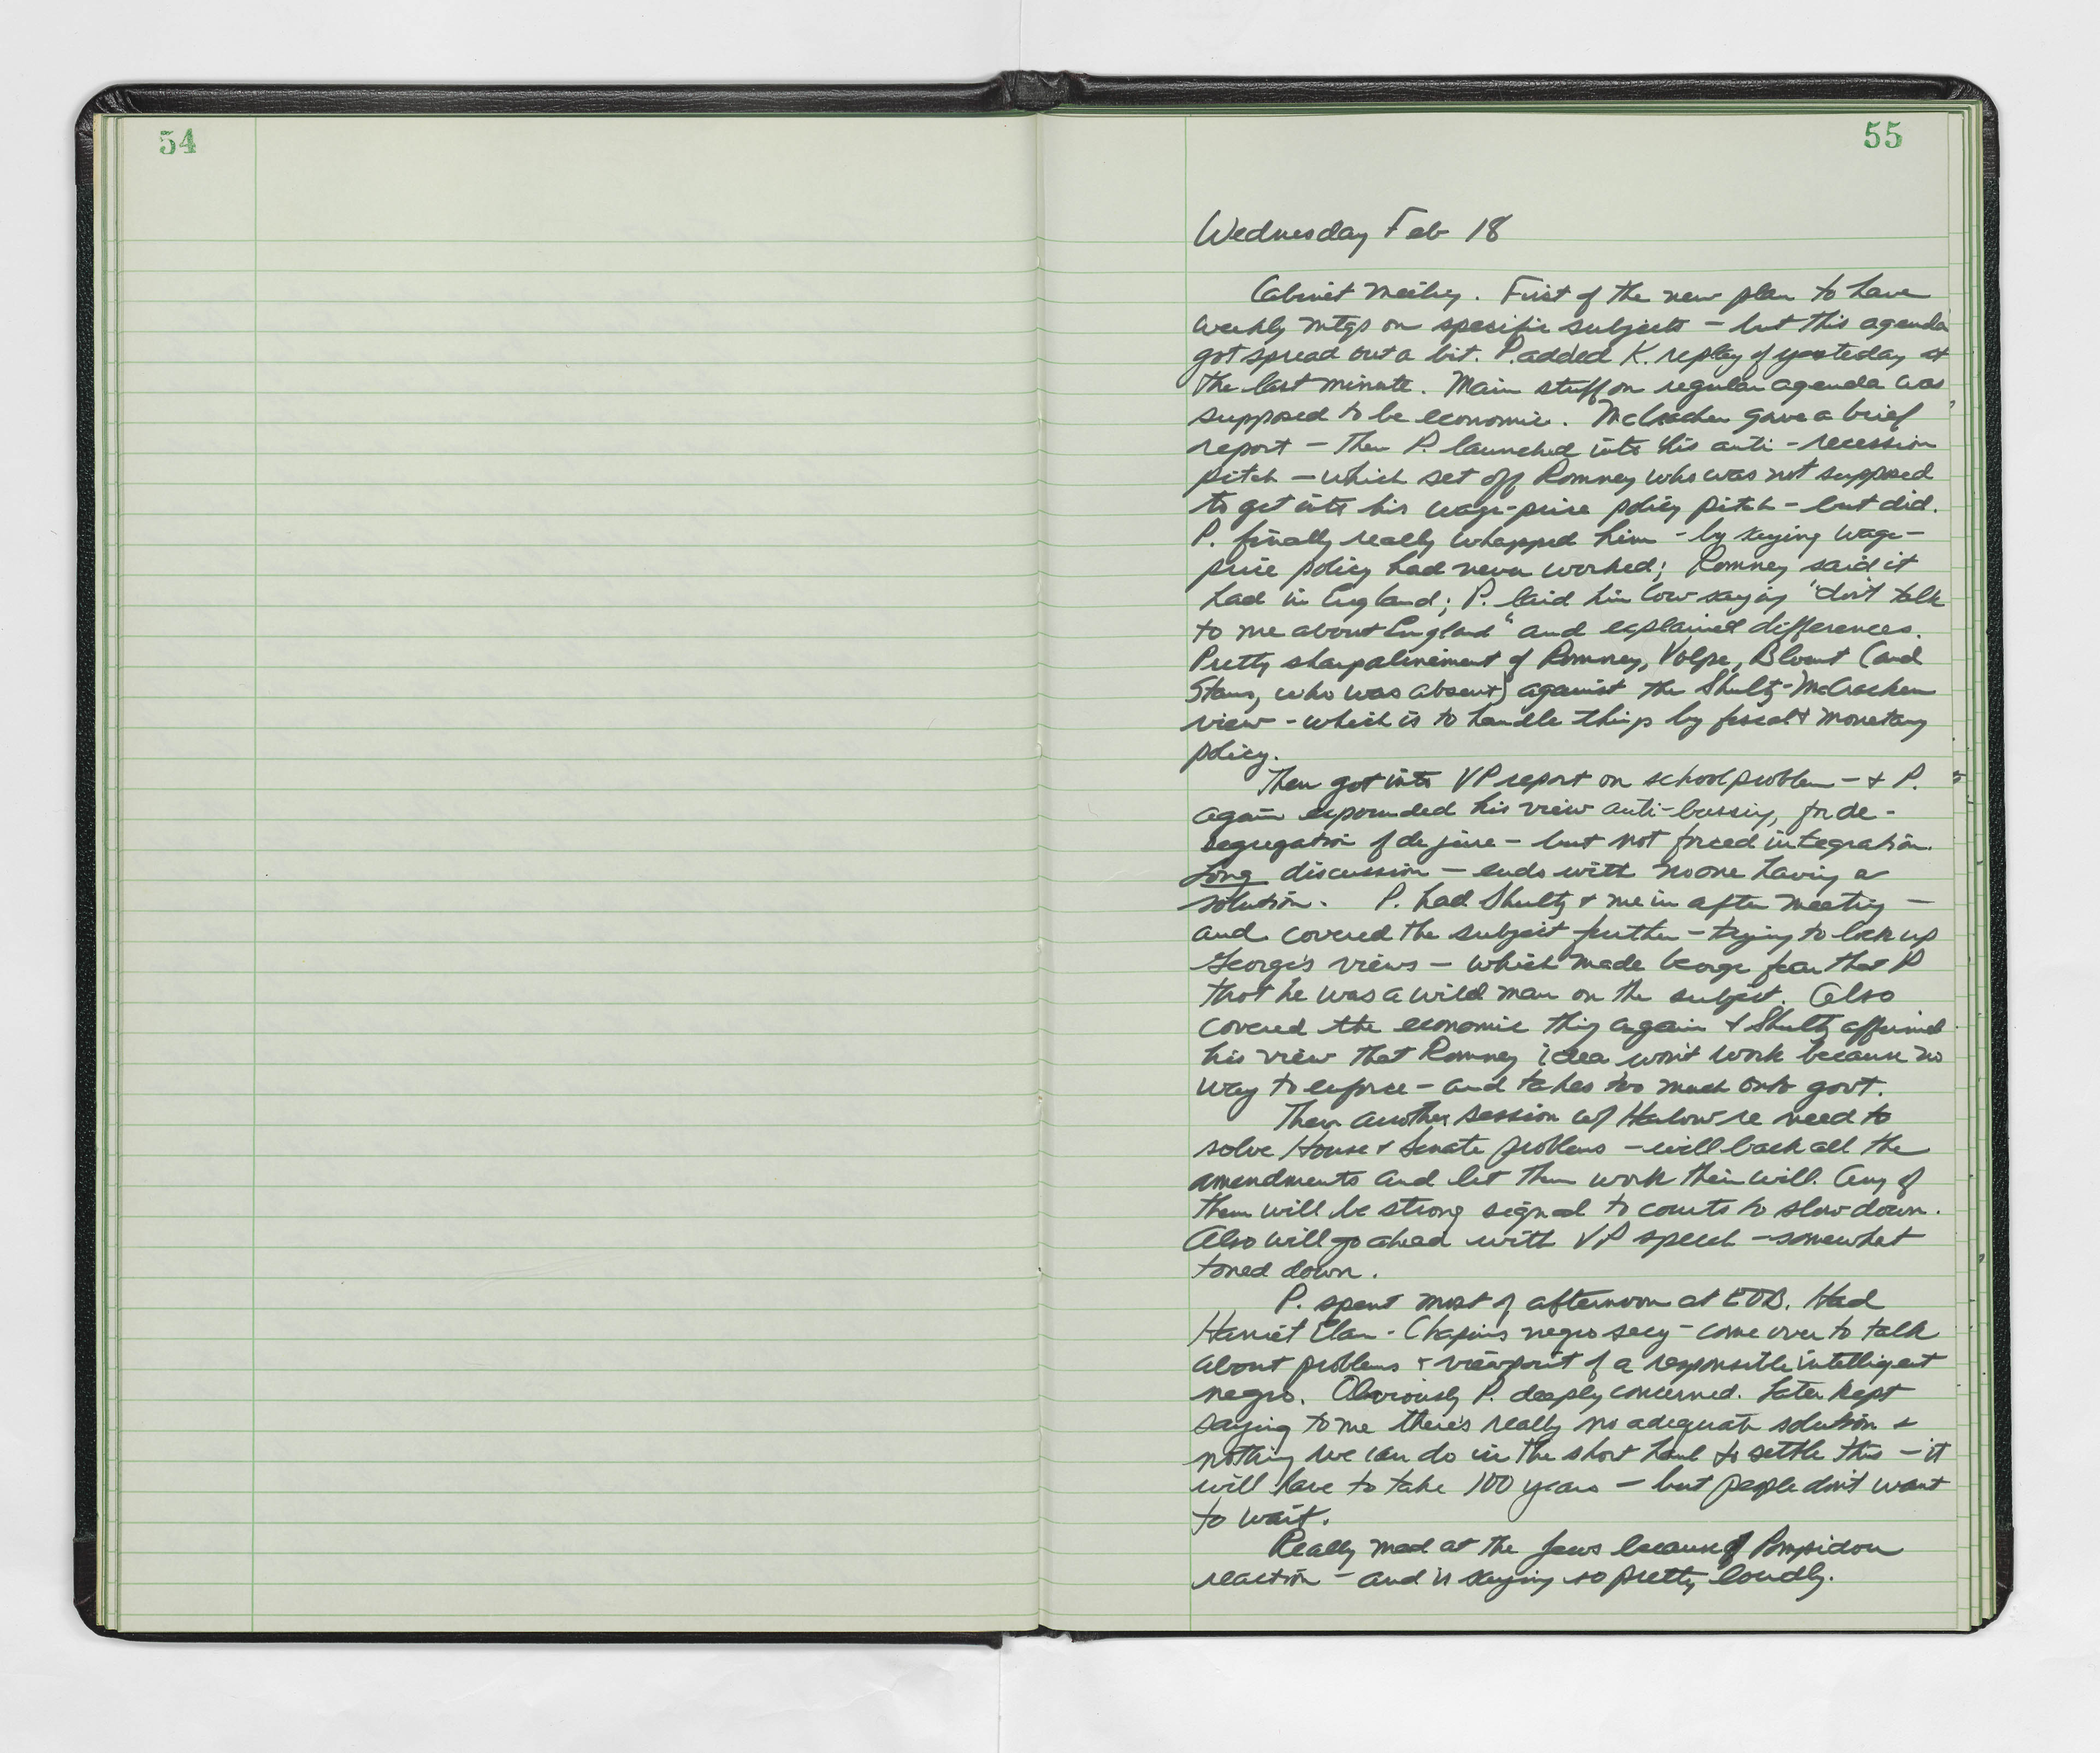 54
55
Wednesday Feb 18
Cabinet Meeting. First of the new plan to have
weekly mtgs on specific subjects - but this agenda
got spread out a bit. P. added K. replay of yesterday at
the last minute. Main stuff on regular agenda was
supposed to be economic. McCracken gave a brief
report - then P. launched into his anti-recession
pitch - which set off Romney who was not supposed
to get into his wage-price policy pitch - but did.
P. finally really whapped him - by saying wage-
price policy had never worked; Romney said it
had in England; P. laid him low saying "don't talk
to me about England" and explained differences.
Pretty sharp alinement of Romney, Volpe, Blount (and
Stans, who was absent) against the Shultz-McCracken
view - which is to handle things by fiscal & monetary
policy.
Then got into VP report on school problem - & P.
again expounded his view anti-bussing, for de-
segregation of de jure - but not forced integration.
Long discussion - ends with no one having a
solution. P. had Shultz & me in after meeting -
and covered the subject further - trying to lock up
George's views - which made George fear that P
thot he was a wild man on the subject. Also
covered the economic thing again & Shultz affirmed
his view that Romney idea won't work because no
way to enforce - and takes too much onto govt.
Then another session w/ Harlow re need to
solve House & Senate problems - will back all the
amendments and let them work their will. Any of
them will be strong signal to courts to slow down.
Also will go ahead with VP speech - somewhat
toned down.
P. spent most of afternoon at EOB. Had
Harriet Elam - Chapin's negro secy - come over to talk
about problems & viewpoint of a responsible intelligent
negro. Obviously P. deeply concerned. Later kept
saying to me there's really no adequate solution &
nothing we can do in the short haul to settle this - it
will have to take 100 years - but people don't want
to wait.
Really mad at the Jews because of Pompidou
reaction - and is saying so pretty loudly.